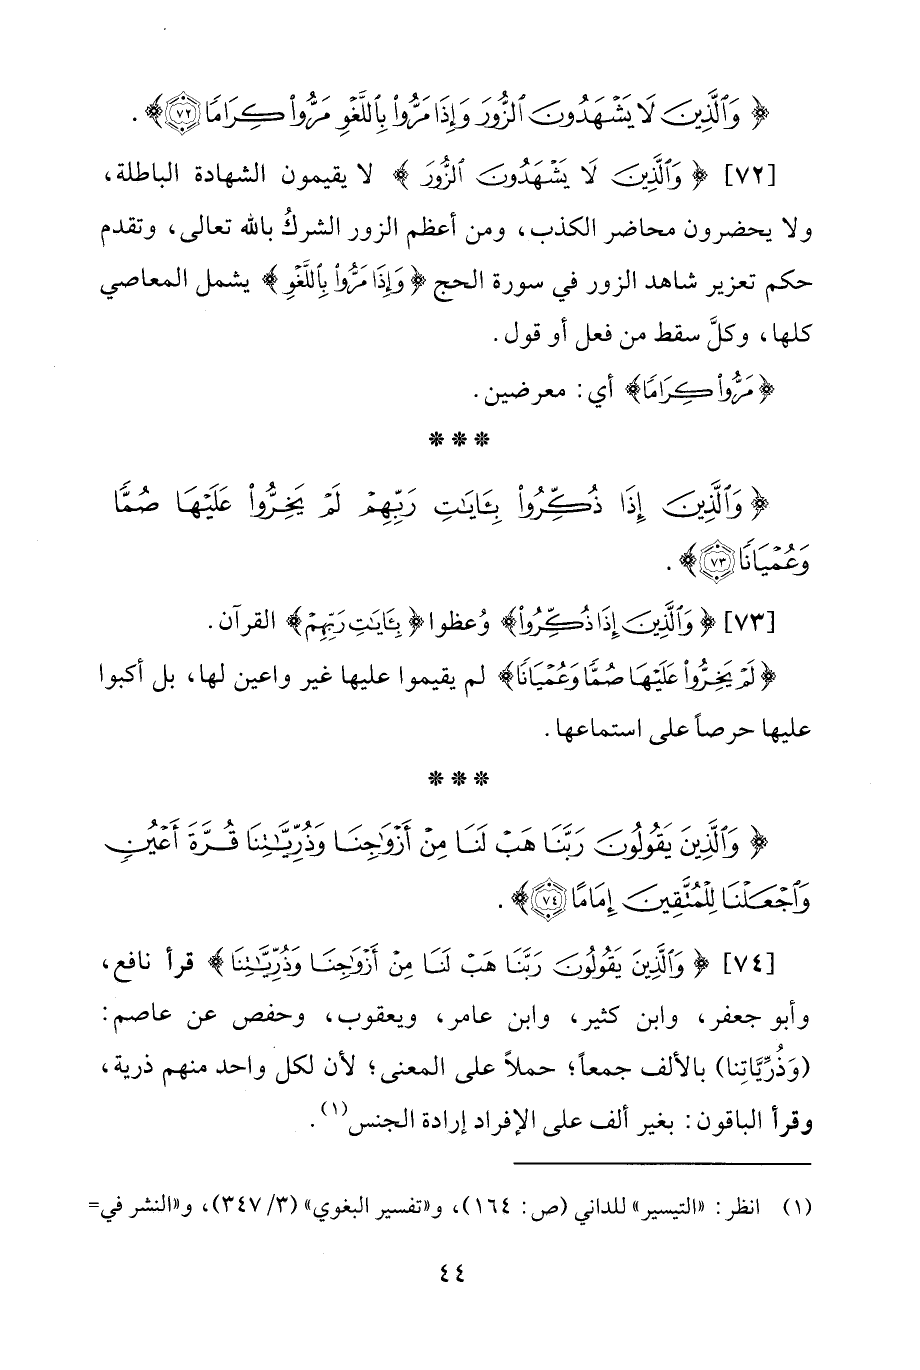 ﴿ وَٱلَّذِينَ لَا يَشْهَدُونَ ٱلزُّورَ وَإِذَا مَرُّوا۟ بِٱللَّغْوِ مَرُّوا۟ كِرَامًا ٧٢﴾ .
[٧٢] ﴿ وَٱلَّذِينَ لَا يَشْهَدُونَ ٱلزُّورَ ﴾ لا يقيمون الشهادة الباطلة،
ولا يحضرون محاضر الكذب، ومن أعظم الزور الشركُ بالله تعالى، وتقدم
حكم تعزير شاهد الزور في سورة الحج ﴿ وَإِذَا مَرُّوا۟ بِٱللَّغْوِ ﴾ يشمل المعاصي
كلها، وكلَّ سقط من فعل أو قول.
﴿مَرُّوا۟ كِرَامًا﴾ أي: معرضين.
* * *
﴿ وَٱلَّذِينَ إِذَا ذُكِّرُوا۟ بِـَٔايَٰتِ رَبِّهِمْ لَمْ يَخِرُّوا۟ عَلَيْهَا صُمًّا
وَعُمْيَانًا ٧٣﴾ .
[٧٣] ﴿ وَٱلَّذِينَ إِذَا ذُكِّرُوا۟﴾ وُعظوا ﴿ بِـَٔايَٰتِ رَبِّهِمْ﴾ القرآن.
﴿لَمْ يَخِرُّوا۟ عَلَيْهَا صُمًّا وَعُمْيَانًا﴾ لم يقيموا عليها غير واعين لها، بل أكبوا
عليها حرصاً على استماعها.
* * *
﴿ وَٱلَّذِينَ يَقُولُونَ رَبَّنَا هَبْ لَنَا مِنْ أَزْوَٰجِنَا وَذُرِّيَّٰتِنَا قُرَّةَ أَعْيُنٍ
وَٱجْعَلْنَا لِلْمُتَّقِينَ إِمَامًا ٧٤﴾ .
[٧٤] ﴿ وَٱلَّذِينَ يَقُولُونَ رَبَّنَا هَبْ لَنَا مِنْ أَزْوَٰجِنَا وَذُرِّيَّٰتِنَا ﴾ قرأ نافع،
وأبو جعفر، وابن كثير، وابن عامر، ويعقوب، وحفص عن عاصم:
(وَذُرِّيَّاتِنا) بالألف جمعاً؛ حملاً على المعنى؛ لأن لكل واحد منهم ذرية،
وقرأ الباقون: بغير ألف على الإفراد إرادة الجنس(١).
(١) انظر: «التيسير» للداني (ص: ١٦٤)، و«تفسير البغوي» (٣/ ٣٤٧)، و«النشر في=
٤٤